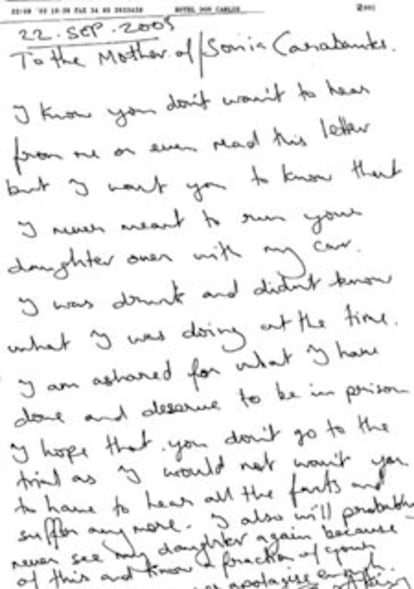 22/09 '03 10:38 FAX 34 95 2825438 HOTEL DON CARLOS 2001
22.SEP.2003
To the Mother of Sonia Carabantes.
I know you don't want to hear
from me or even read this letter
but I want you to know that
I never meant to run your
daughter over with my car.
I was drunk and didn't know
what I was doing at the time.
I am ashamed for what I have
done and deserve to be in prison
I hope that you don't go to the
trial as I would not want you
to have to hear all the facts and
suffer any more. I also will probably
never see my daughter again because
of this and know a fraction of your
apologise enough.